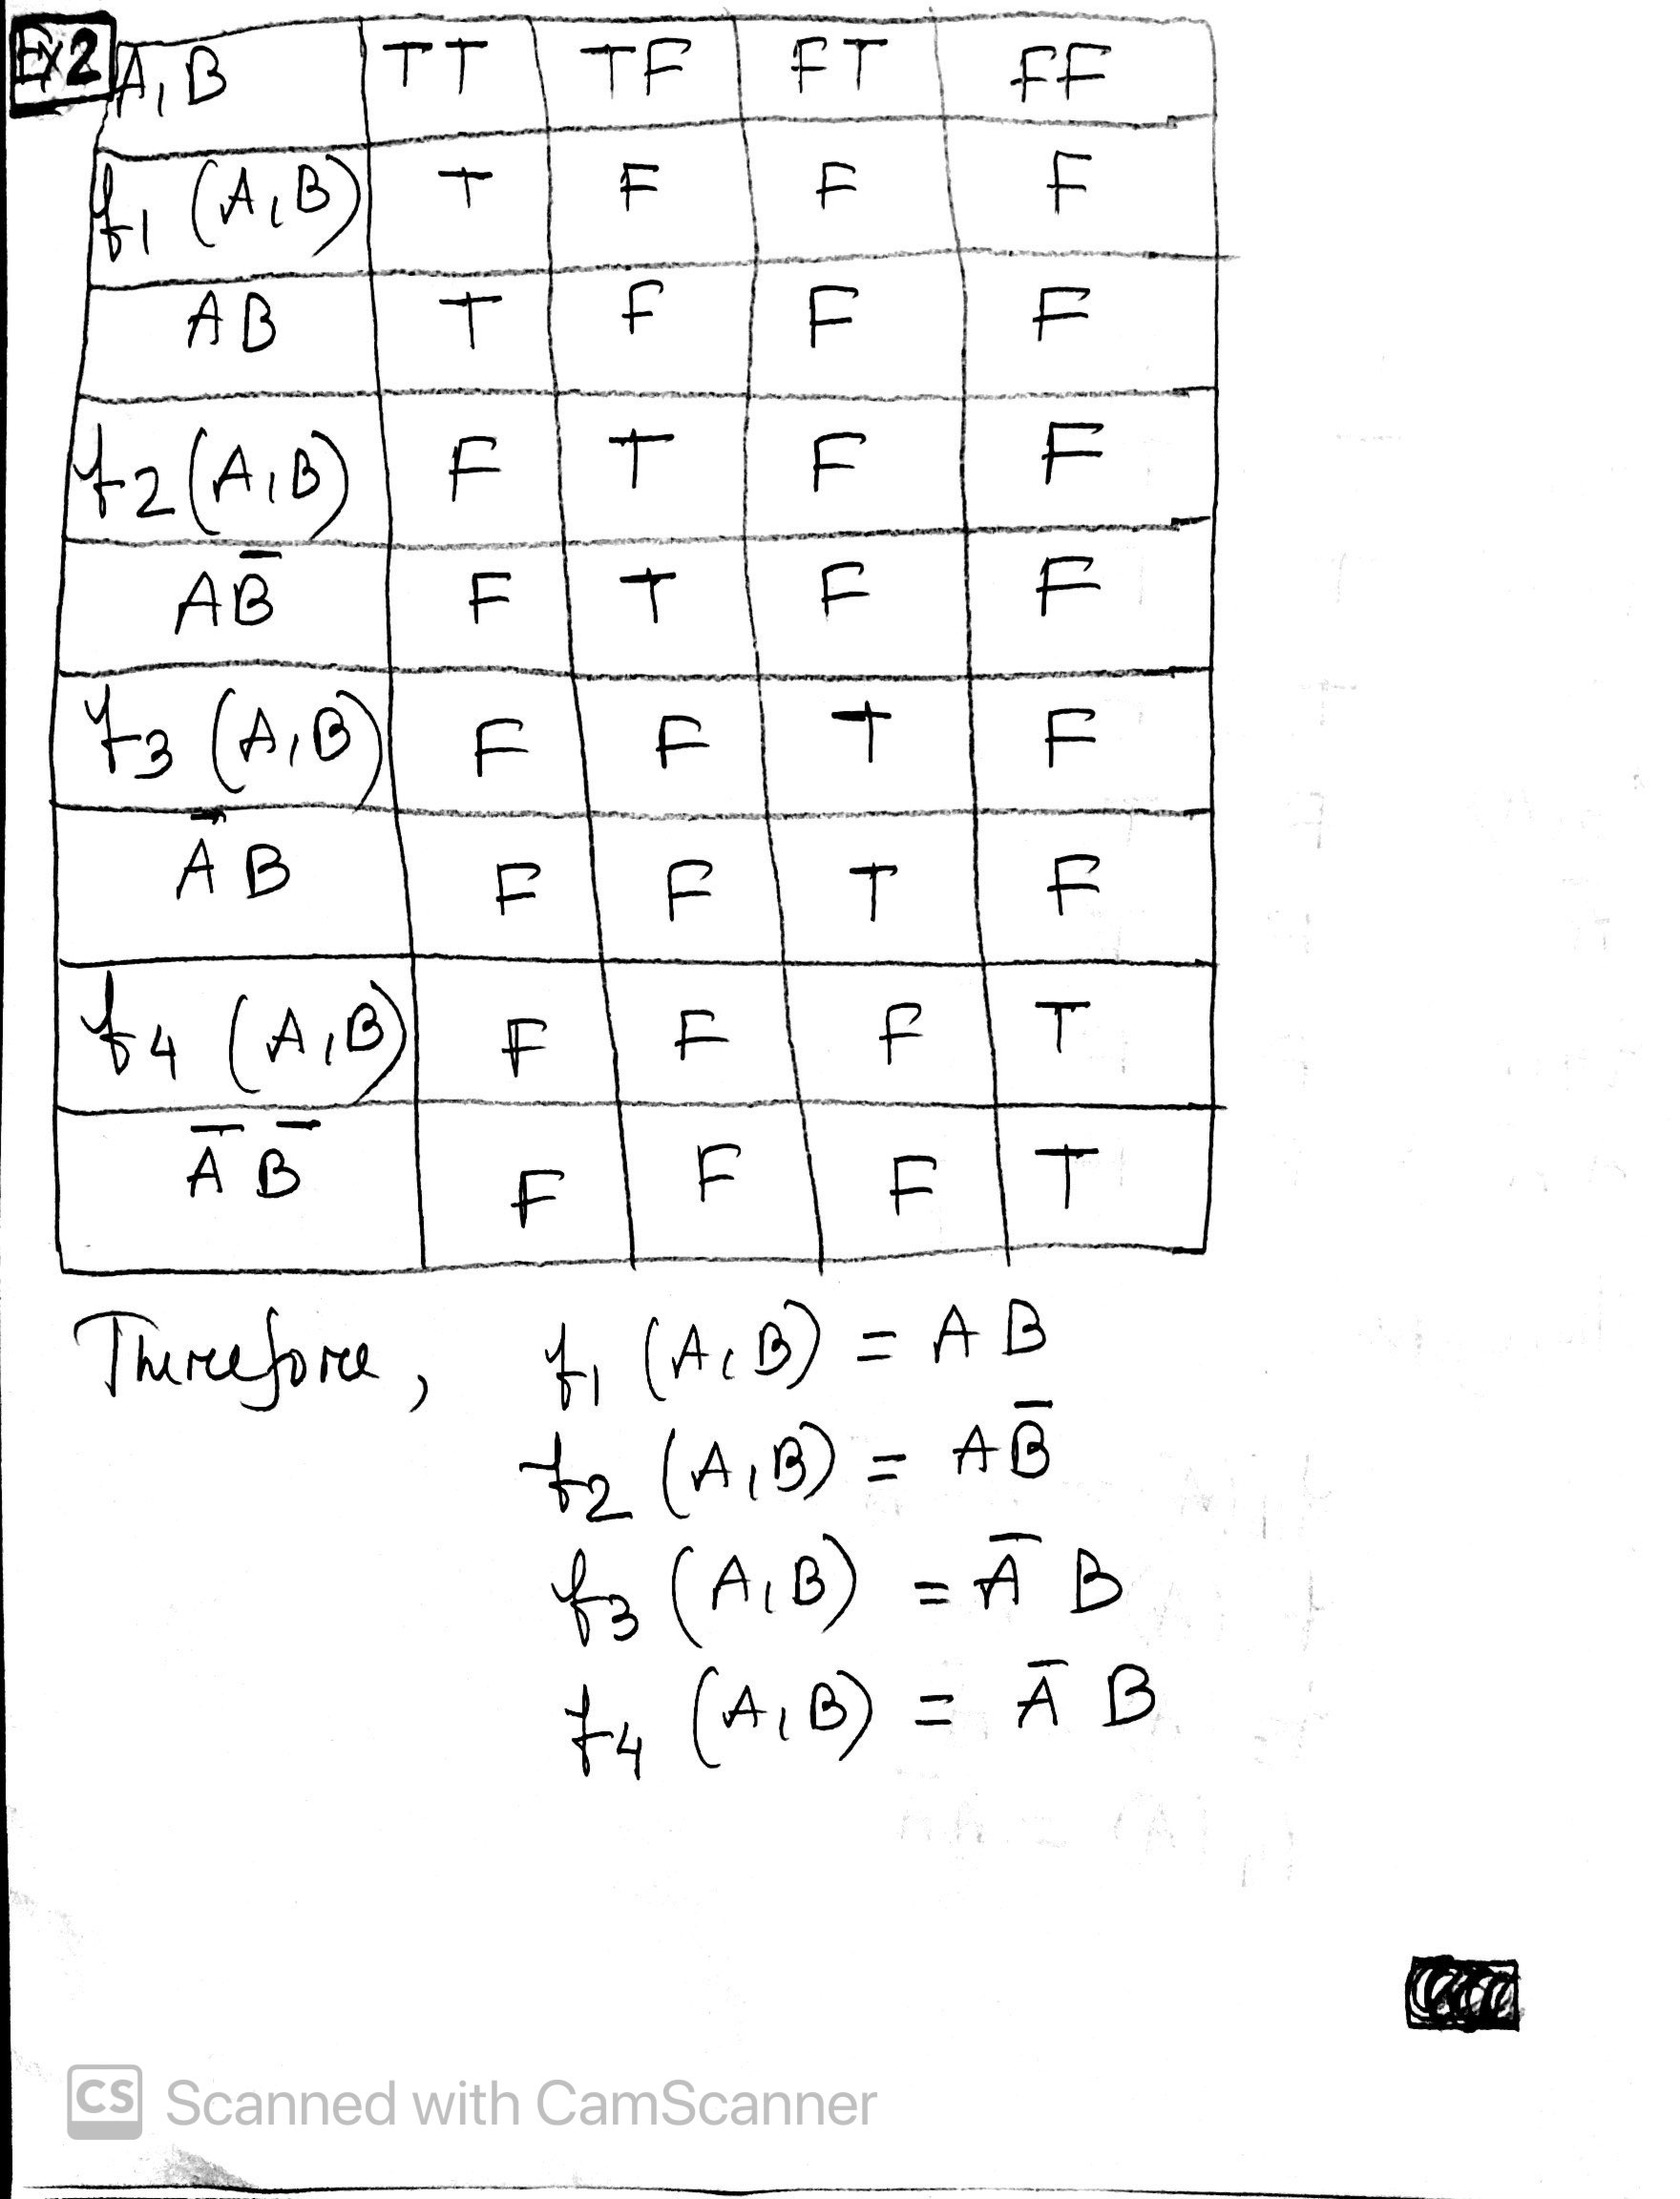 Ex2
A, B TT TF FT FF
f1 (A, B) T F F F
AB T F F F
f2 (A, B) F T F F
AB̅ F T F F
f3 (A, B) F F T F
A̅ B F F T F
f4 (A, B) F F F T
A̅ B̅ F F F T
Therefore, f1 (A, B) = A B
f2 (A, B) = AB̅
f3 (A, B) = A̅ B
f4 (A, B) = A̅ B
CS Scanned with CamScanner